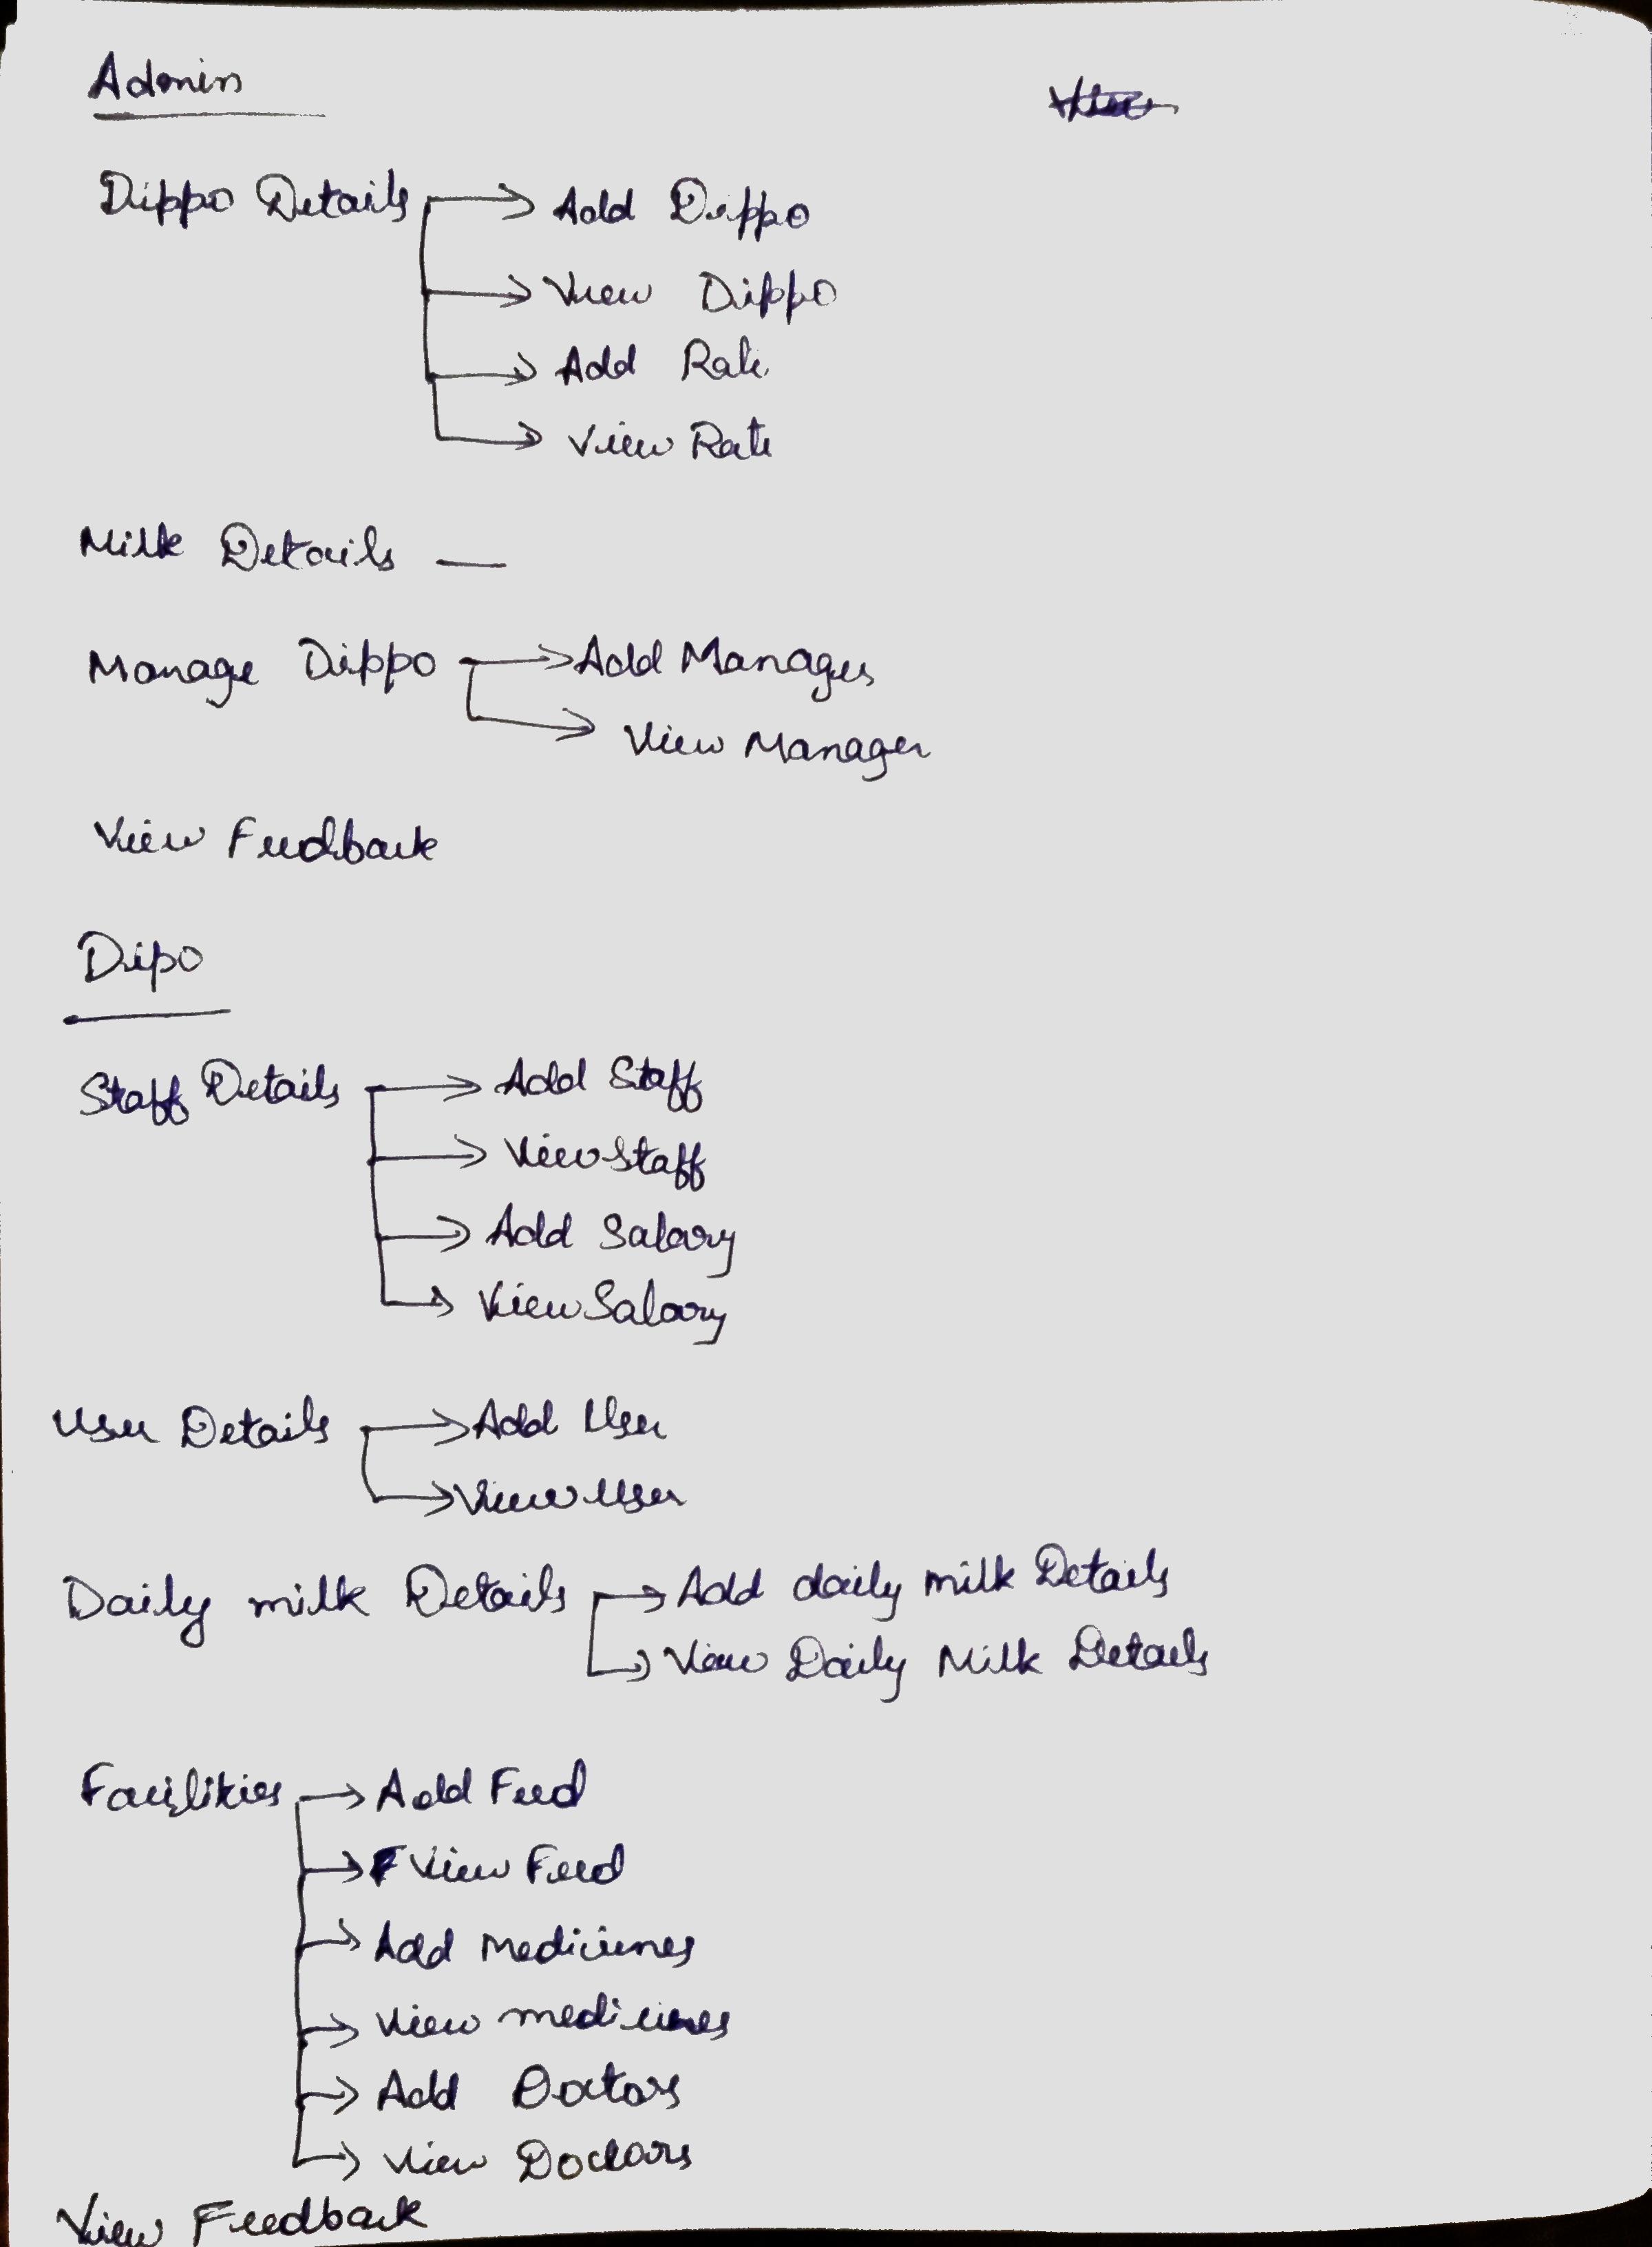 Admin
Dippo Details → Add Dippo
→ View Dippo
→ Add Rate
→ View Rate
Milk Details —
Manage Dippo → Add Manager
→ View Manager
View Feedback
Dipo
Staff Details → Add Staff
→ View Staff
→ Add Salary
→ View Salary
User Details → Add User
→ View User
Daily milk Details → Add daily milk Details
→ View Daily Milk Details
Facilities → Add Feed
→ View Feed
→ Add Medicines
→ View medicines
→ Add Doctors
→ View Doctors
View Feedback